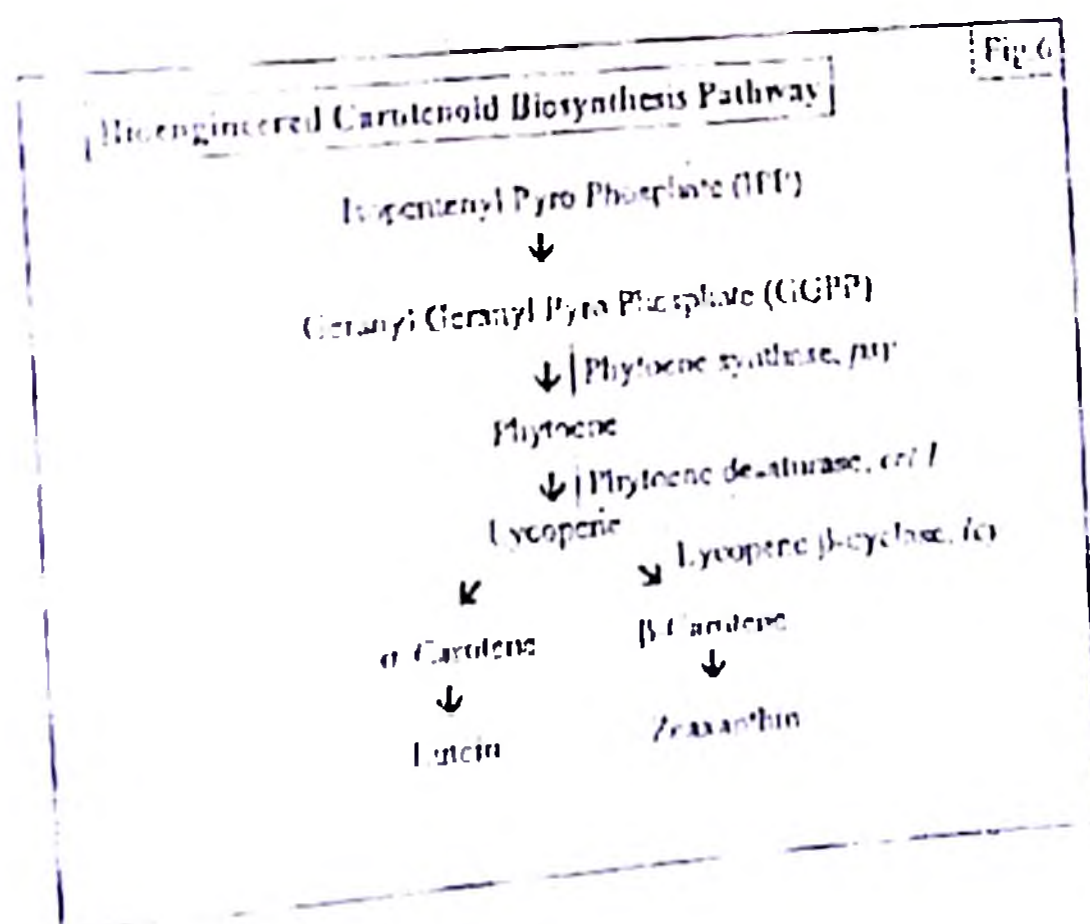 Fig 6
Bioengineered Carotenoid Biosynthesis Pathway
Isopentenyl Pyro Phosphate (IPP)
↓
Geranyl Geranyl Pyro Phosphate (GGPP)
↓ | Phytoene synthase, psy
Phytoene
↓ | Phytoene desaturase, crt I
Lycopene
↙ ↘ Lycopene β-cyclase, lcy
α Carotene β Carotene
↓ ↓
Lutein Zeaxanthin